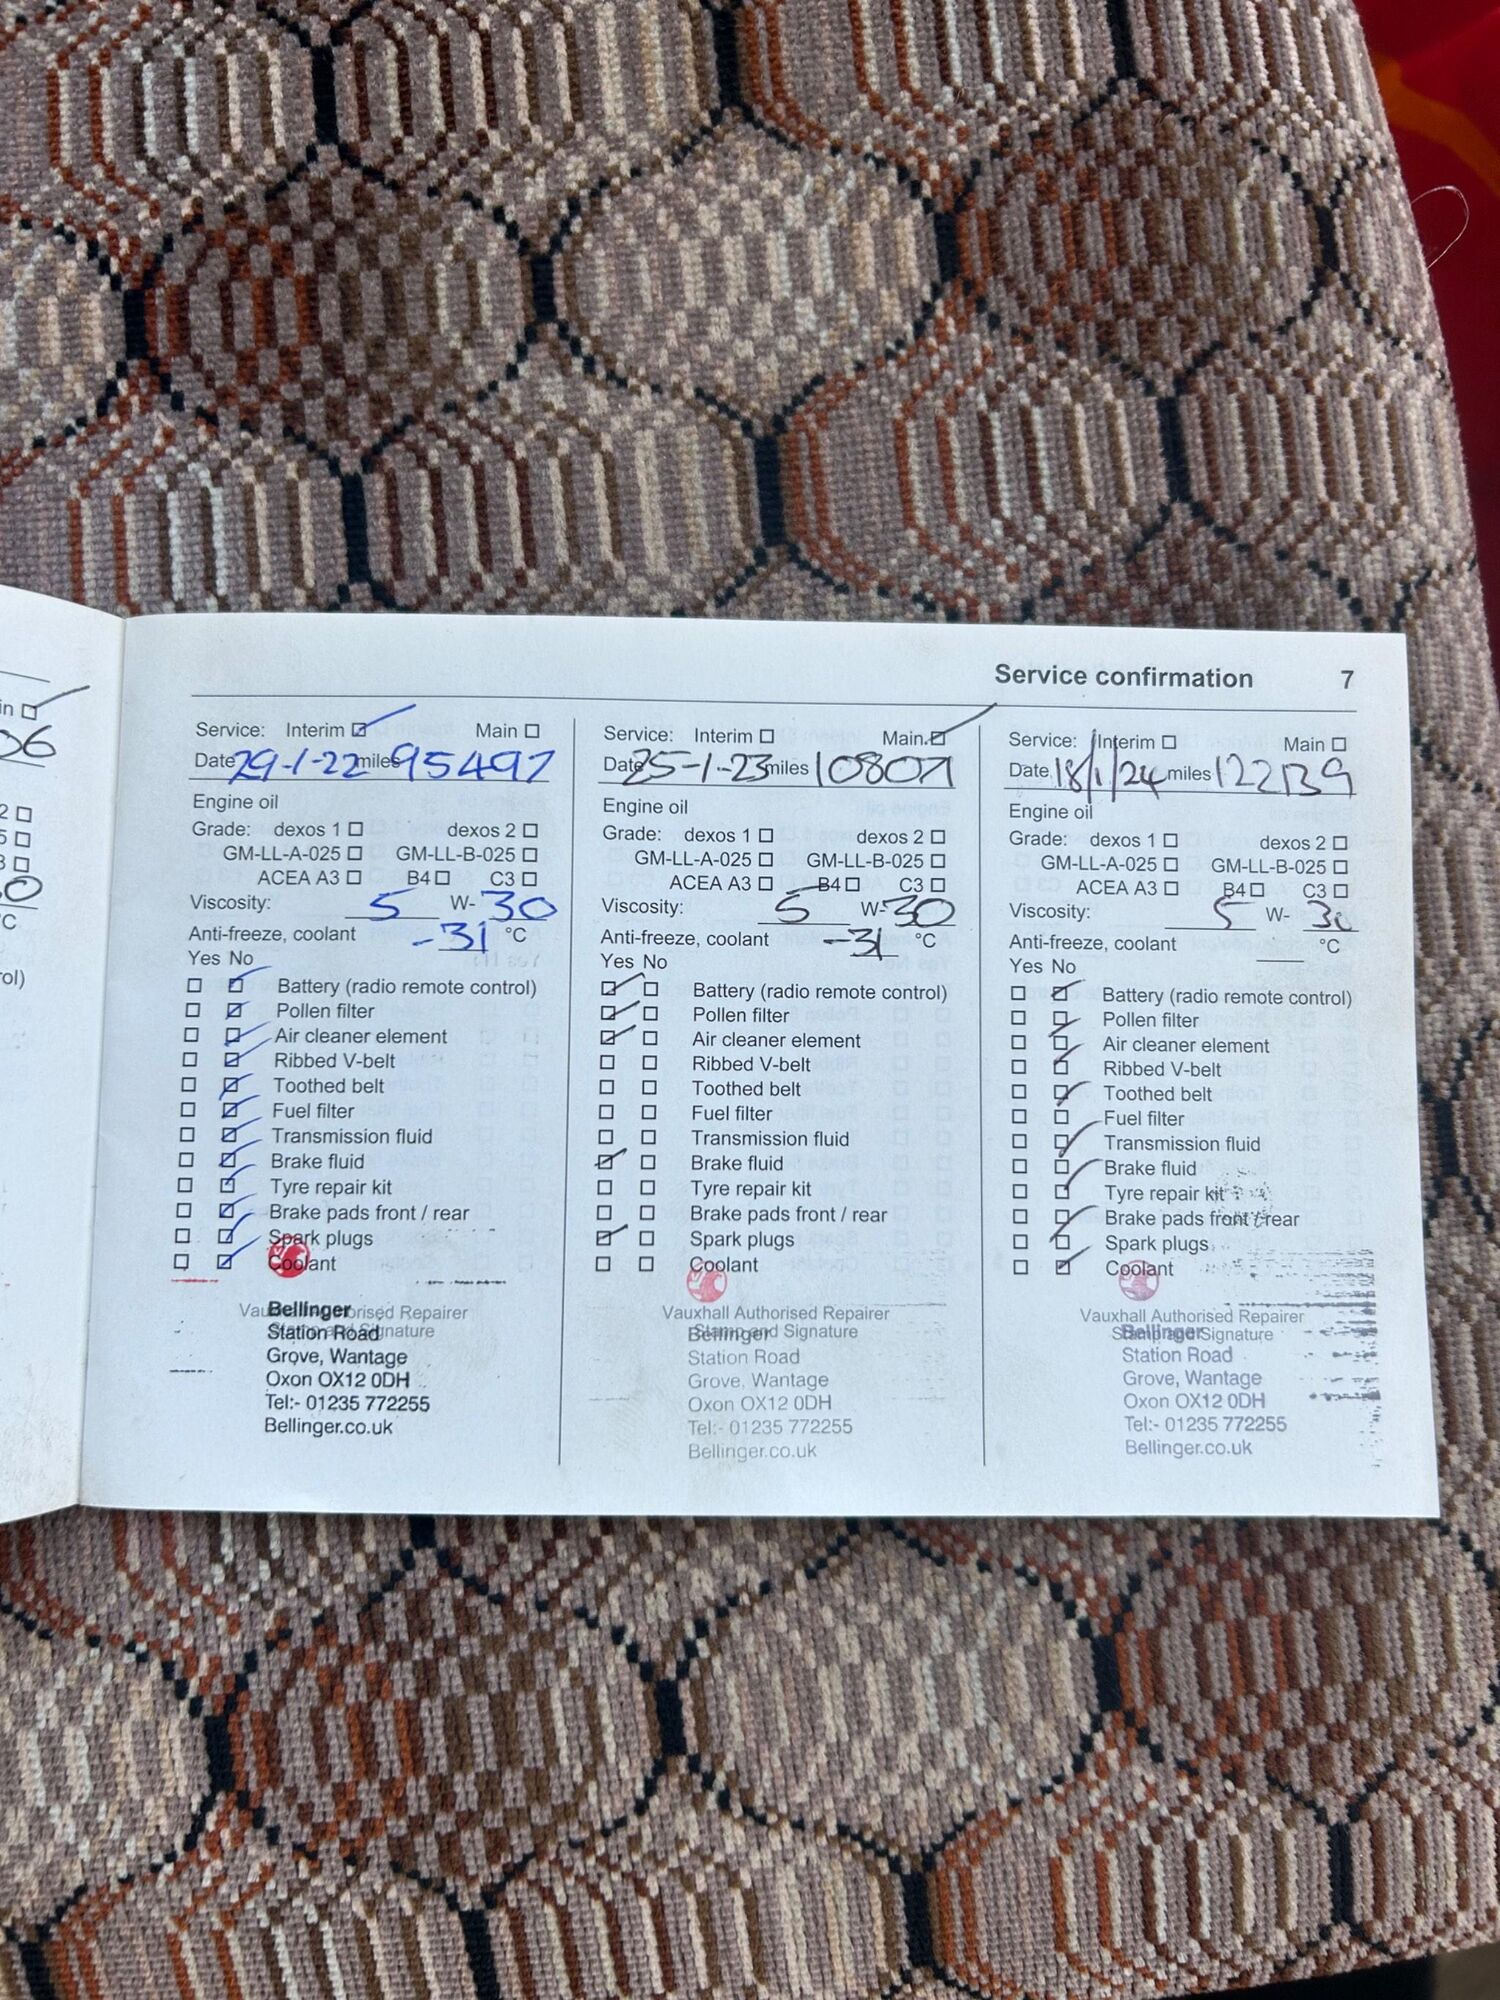 in
06
2
5
3
0
°C
ol)
Service confirmation 7
Service: Interim Main
Date 29-1-22 miles 95497
Engine oil
Grade: dexos 1 dexos 2
GM-LL-A-025 GM-LL-B-025
ACEA A3 B4 C3
Viscosity: 5 W- 30
Anti-freeze, coolant -31 °C
Yes No
Battery (radio remote control)
Pollen filter
Air cleaner element
Ribbed V-belt
Toothed belt
Fuel filter
Transmission fluid
Brake fluid
Tyre repair kit
Brake pads front / rear
Spark plugs
Coolant
Vauxhall Authorised Repairer
Stamp and Signature
Bellinger
Station Road
Grove, Wantage
Oxon OX12 0DH
Tel:- 01235 772255
Bellinger.co.uk
Service: Interim Main
Date 25-1-23 miles 108071
Engine oil
Grade: dexos 1 dexos 2
GM-LL-A-025 GM-LL-B-025
ACEA A3 B4 C3
Viscosity: 5 W- 30
Anti-freeze, coolant -31 °C
Yes No
Battery (radio remote control)
Pollen filter
Air cleaner element
Ribbed V-belt
Toothed belt
Fuel filter
Transmission fluid
Brake fluid
Tyre repair kit
Brake pads front / rear
Spark plugs
Coolant
Vauxhall Authorised Repairer
Stamp and Signature
Bellinger
Station Road
Grove, Wantage
Oxon OX12 0DH
Tel:- 01235 772255
Bellinger.co.uk
Service: Interim Main
Date 18/1/24 miles 122139
Engine oil
Grade: dexos 1 dexos 2
GM-LL-A-025 GM-LL-B-025
ACEA A3 B4 C3
Viscosity: 5 W- 30
Anti-freeze, coolant °C
Yes No
Battery (radio remote control)
Pollen filter
Air cleaner element
Ribbed V-belt
Toothed belt
Fuel filter
Transmission fluid
Brake fluid
Tyre repair kit
Brake pads front / rear
Spark plugs
Coolant
Vauxhall Authorised Repairer
Stamp and Signature
Bellinger
Station Road
Grove, Wantage
Oxon OX12 0DH
Tel:- 01235 772255
Bellinger.co.uk